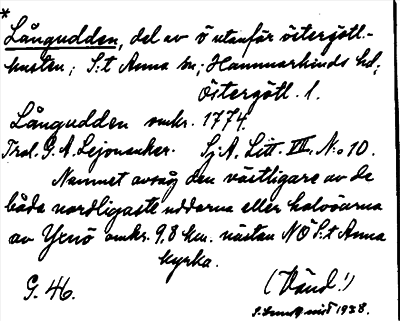 *
Långudden, del av ö utanför östergötl-
kusten; S:t Anna sn; Hammarkinds hd;
Östergötl. l.
Långudden omkr. 1774.
Trol. G. A. Lejonanker. Sj.A. Litt. VII, N:o 10.
Namnet avsåg den västligare av de
båda nordligaste uddarna eller halvöarna
av Yxnö omkr. 9,8 km. nästan NÖ S:t Anna
kyrka.
G. 46. (Vänd!)
1938.